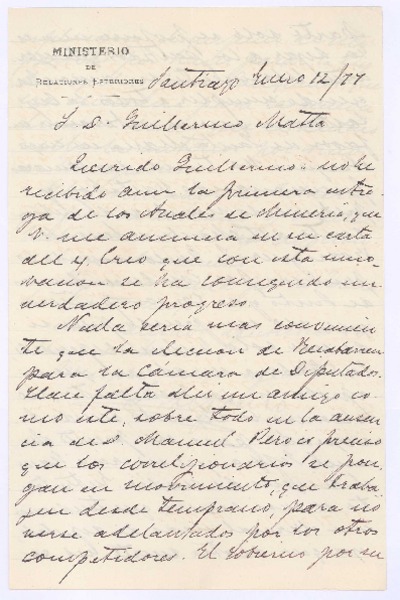 MINISTERIO
DE
RELACIONES EXTERIORES
Santiago Enero 12/77
S D. Guillermo Matta
Querido Guillermo: no he
recibido aun la primera entre
ga de los Anales de Mineria, que
V. me anuncia en su carta
del 4. Creo que con esta inno
vacion se ha conseguido un
verdadero progreso.
Nada seria mas convenien
te que la eleccion de
para la Cámara de Diputados.
Hace falta alli un amigo co
mo este, sobre todo en la ausen
cia de D. Manuel. Pero es preciso
que los correlijionarios se pon
gan en movimiento, que traba
jen desde temprano, para no
verse adelantados por los otros
competidores. El Gobierno por su